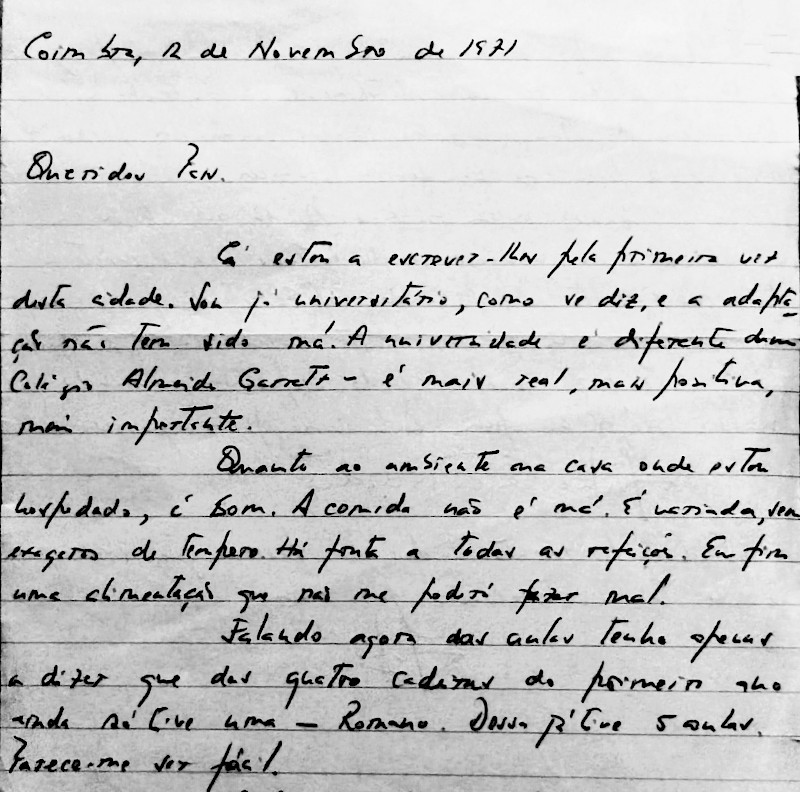 Coimbra, 12 de Novembro de 1971
Queridos Pais.
Cá estou a escrever-lhes pela primeira vez
desta cidade. Sou já universitário, como se diz, e a adapta-
ção não tem sido má. A universidade é diferente dum
Colégio Almeida Garrett - é mais real, mais positiva,
mais importante.
Quanto ao ambiente na casa onde estou
hospedado, é bom. A comida não é má. É variada, sem
exageros de tempero. Há fruta a todas as refeições. Enfim
uma alimentação que não me poderá fazer mal.
Falando agora das aulas tenho apenas
a dizer que das quatro cadeiras do primeiro ano
ainda só tive uma - Romano. Dessa já tive 5 aulas.
Parece-me ser fácil.